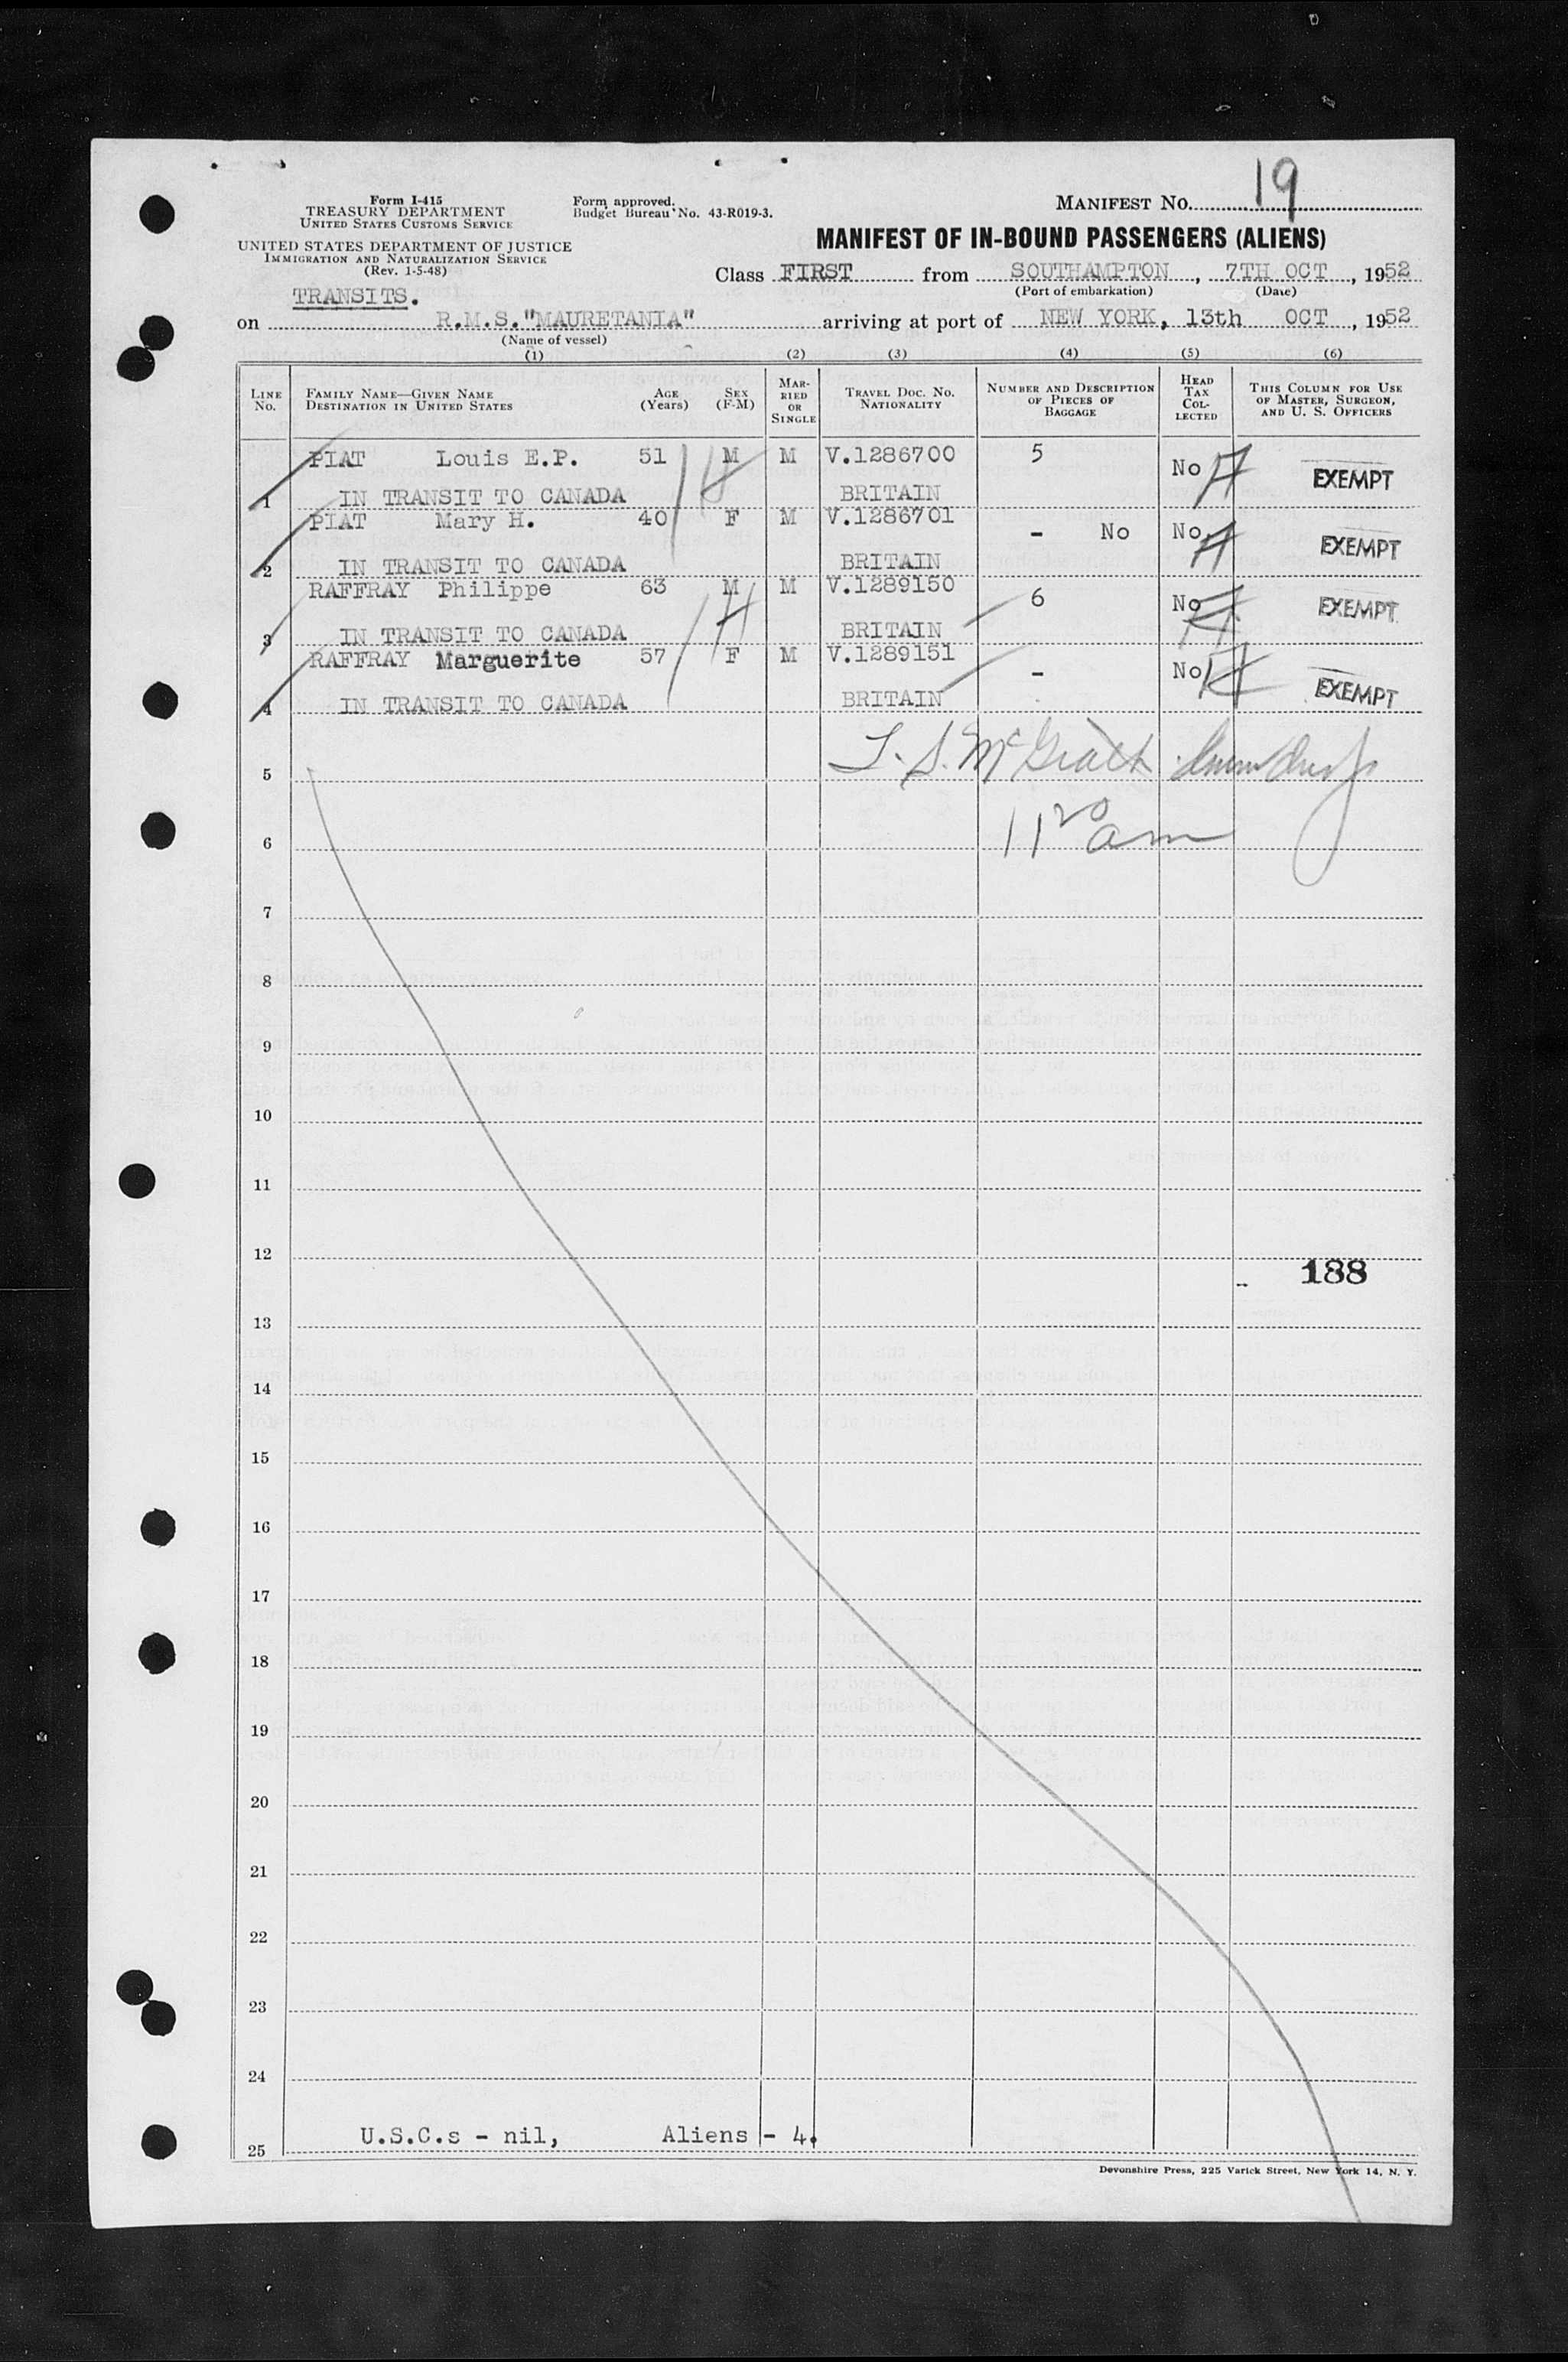 19
Form I-415
TREASURY DEPARTMENT
UNITED STATES CUSTOMS SERVICE
Form approved.
Budget Bureau No. 43-R019-3.
MANIFEST NO.
UNITED STATES DEPARTMENT OF JUSTICE
IMMIGRATION AND NATURALIZATION SERVICE
(Rev. 1-5-48)
MANIFEST OF IN-BOUND PASSENGERS (ALIENS)
Class FIRST from SOUTHAMPTON, 7TH OCT, 1952
(Port of embarkation) (Date)
TRANSITS.
on R.M.S."MAURETANIA" arriving at port of NEW YORK, 13th OCT, 1952
(Name of vessel)
(1) (2) (3) (4) (5) (6)
LINE NO.
FAMILY NAME—GIVEN NAME
DESTINATION IN UNITED STATES
AGE (Years)
SEX (F-M)
MARRIED OR SINGLE
TRAVEL DOC. NO. NATIONALITY
NUMBER AND DESCRIPTION OF PIECES OF BAGGAGE
HEAD TAX COLLECTED
THIS COLUMN FOR USE OF MASTER, SURGEON, AND U. S. OFFICERS
PIAT Louis E.P. 51 M M V.1286700 5 No EXEMPT
1 IN TRANSIT TO CANADA BRITAIN
PIAT Mary H. 40 F M V.1286701 - No No EXEMPT
2 IN TRANSIT TO CANADA BRITAIN
RAFFRAY Philippe 63 M M V.1289150 6 No EXEMPT
3 IN TRANSIT TO CANADA BRITAIN
RAFFRAY Marguerite 57 F M V.1289151 - No EXEMPT
4 IN TRANSIT TO CANADA BRITAIN
McGrath
5
11 20 am
6
7
8
9
10
11
12
188
13
14
15
16
17
18
19
20
21
22
23
24
U.S.C.s - nil, Aliens - 4.
25
Devonshire Press, 225 Varick Street, New York 14, N. Y.